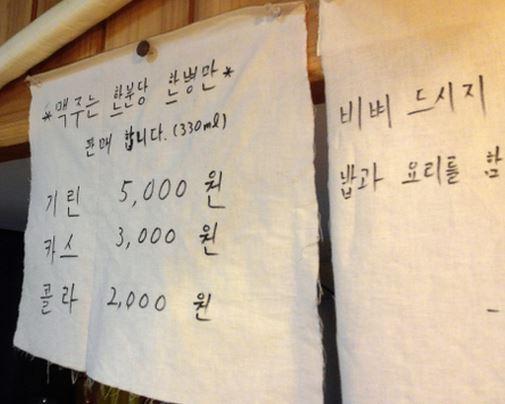 *맥주는 한분당 한병만*
판매 합니다. (330ml)
기린 5,000 원
카스 3,000 원
콜라 2,000 원
비벼 드시지
밥과 요리를 함